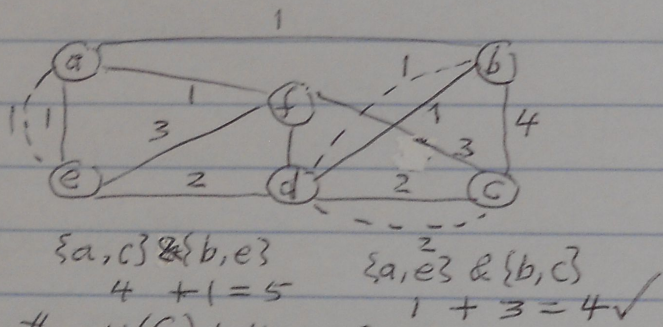 1
a
b
1
1
f
1
1
1
3
3
4
e
2
d
2
c
2
{a,c} & {b,e}
{a,e} & {b,c}
4 + 1 = 5
1 + 3 = 4 ✓